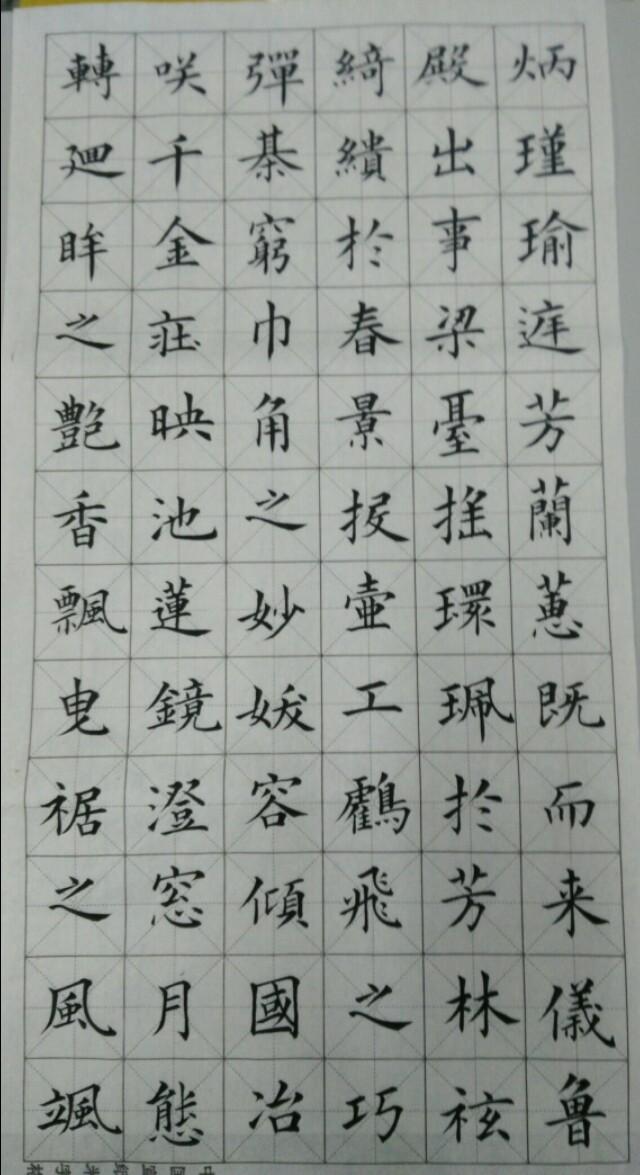 炳瑾瑜逰芳蘭蕙既而来儀魯
殿出事梁臺摇環珮於芳林袨
綺繢於春景投壷工鸖飛之巧
彈棊窮巾角之妙媛容傾國冶
咲千金莊映池蓮鏡澄窓月態
轉廻眸之艶香飄曳裾之風颯